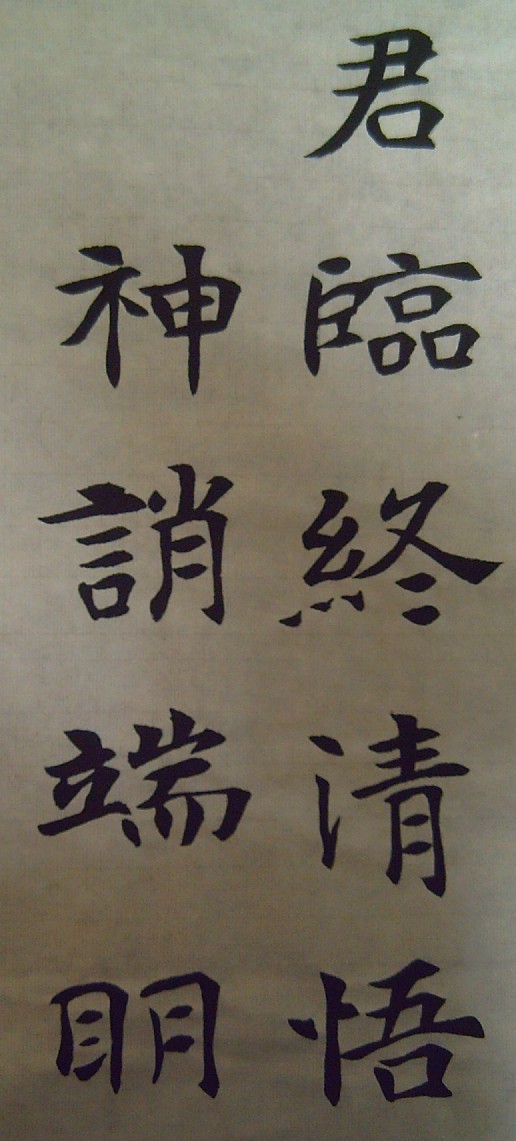 君臨終清悟
神誚端眀